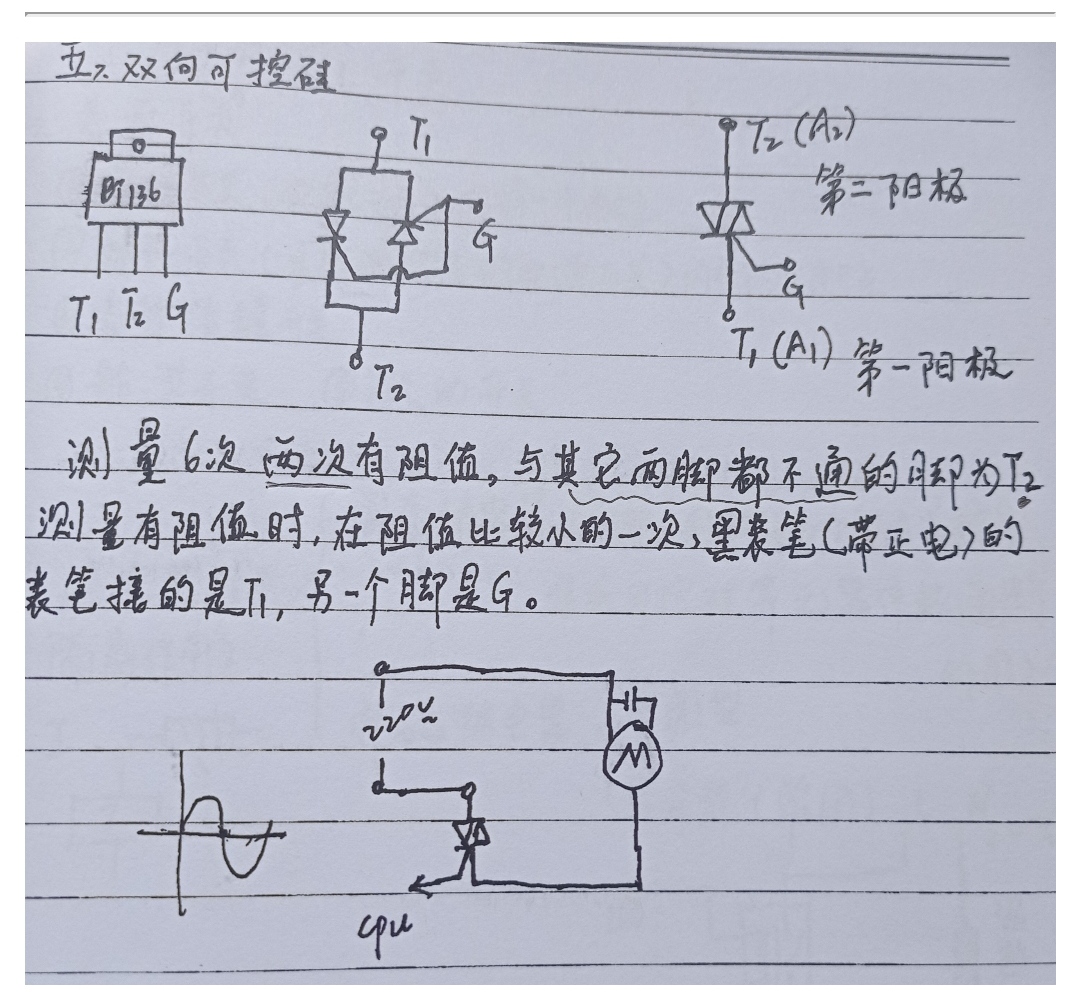 五、双向可控硅
BT136
T1 T2 G
T1
G
T2
T2(A2)
第二阳极
G
T1(A1) 第一阳极
测量6次 两次有阻值,与其它两脚都不通的脚为T2。
测量有阻值时,在阻值比较小的一次,黑表笔(带正电)的
表笔接的是T1,另一个脚是G。
220V~
M
cpu